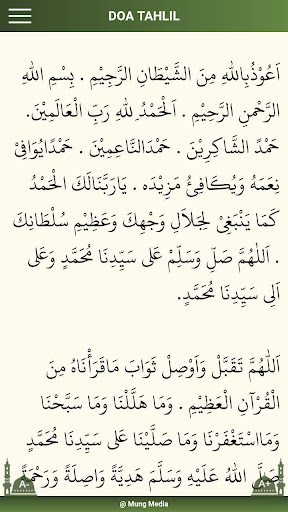 DOA TAHLIL
اَعُوْذُبِاللهِ مِنَ الشَّيْطَانِ الرَّجِيْمِ . بِسْمِ اللهِ
الرَّحْمنِ الرَّحِيْمِ . اَلْحَمْدُ لِلهِ رَبِّ الْعَالَمِيْنَ.
حَمْدً الشَّاكِرِيْنَ . حَمْدَالنَّاعِمِيْنَ . حَمْدًايُوَافِيْ
نِعَمَهُ وَيُكَافِئُ مَزِيْدَه . يَارَبَّنَالَكَ الْحَمْدُ
كَمَا يَنْبَغِيْ لِجَلاَلِ وَجْهِكَ وَعَظِيْمِ سُلْطَانِكَ
. اَللهُمَّ صَلِّ وَسَلِّمْ عَلى سَيِّدِنَا مُحَمَّدٍ وَعَلى
اَلِى سَيِّدِنَا مُحَمَّدٍ.
اَللهُمَّ تَقَبَّلْ وَاَوْصِلْ ثَوَابَ مَاقَرَأْنَاهُ مِنَ
الْقُرْآنِ الْعَظِيْمِ . وَمَا هَلَّلْنَا وَمَا سَبَّحْنَا
وَمَااسْتَغْفَرْنَا وَمَا صَلَّيْنَا عَلى سَيِّدِنَا مُحَمَّدٍ
صَلَّ اللهُ عَلَيْهِ وَسَلَّمَ هَدِيَّةً وَاصِلَةً وَرَحْمَةً
A- A+
@ Mung Media